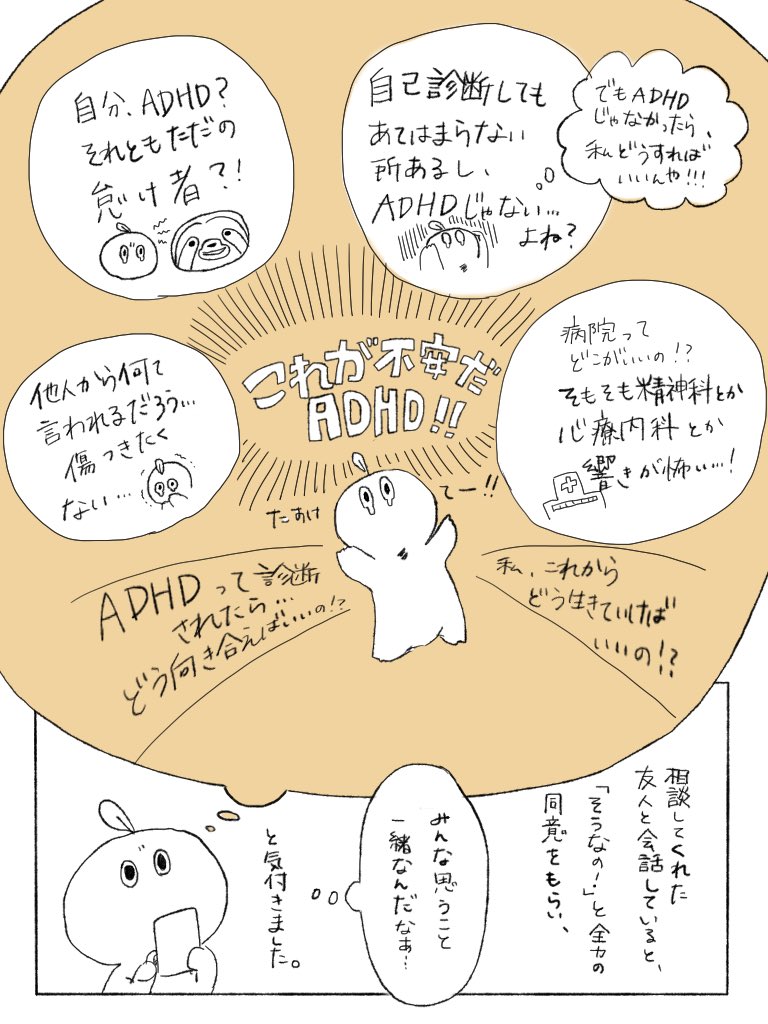 自分、ADHD?
それともただの
怠け者?!
自己診断しても
あてはまらない
所あるし、
ADHDじゃない…
よね?
でもADHD
じゃなかったら、
私どうすれば
いいんや!!!
これが不安だ
ADHD!!
他人から何て
言われるだろう…
傷つきたく
ない…
病院って
どこがいいの!?
そもそも精神科とか
心療内科とか
響きが怖い…!
たすけ
てー!!
ADHDって診断
されたら…
どう向き合えばいいの!?
私、これから
どう生きていけば
いいの!?
相談してくれた
友人と会話していると、
「そうなの!」と全力の
同意をもらい、
みんな思うこと
一緒なんだなぁ…
と気付きました。